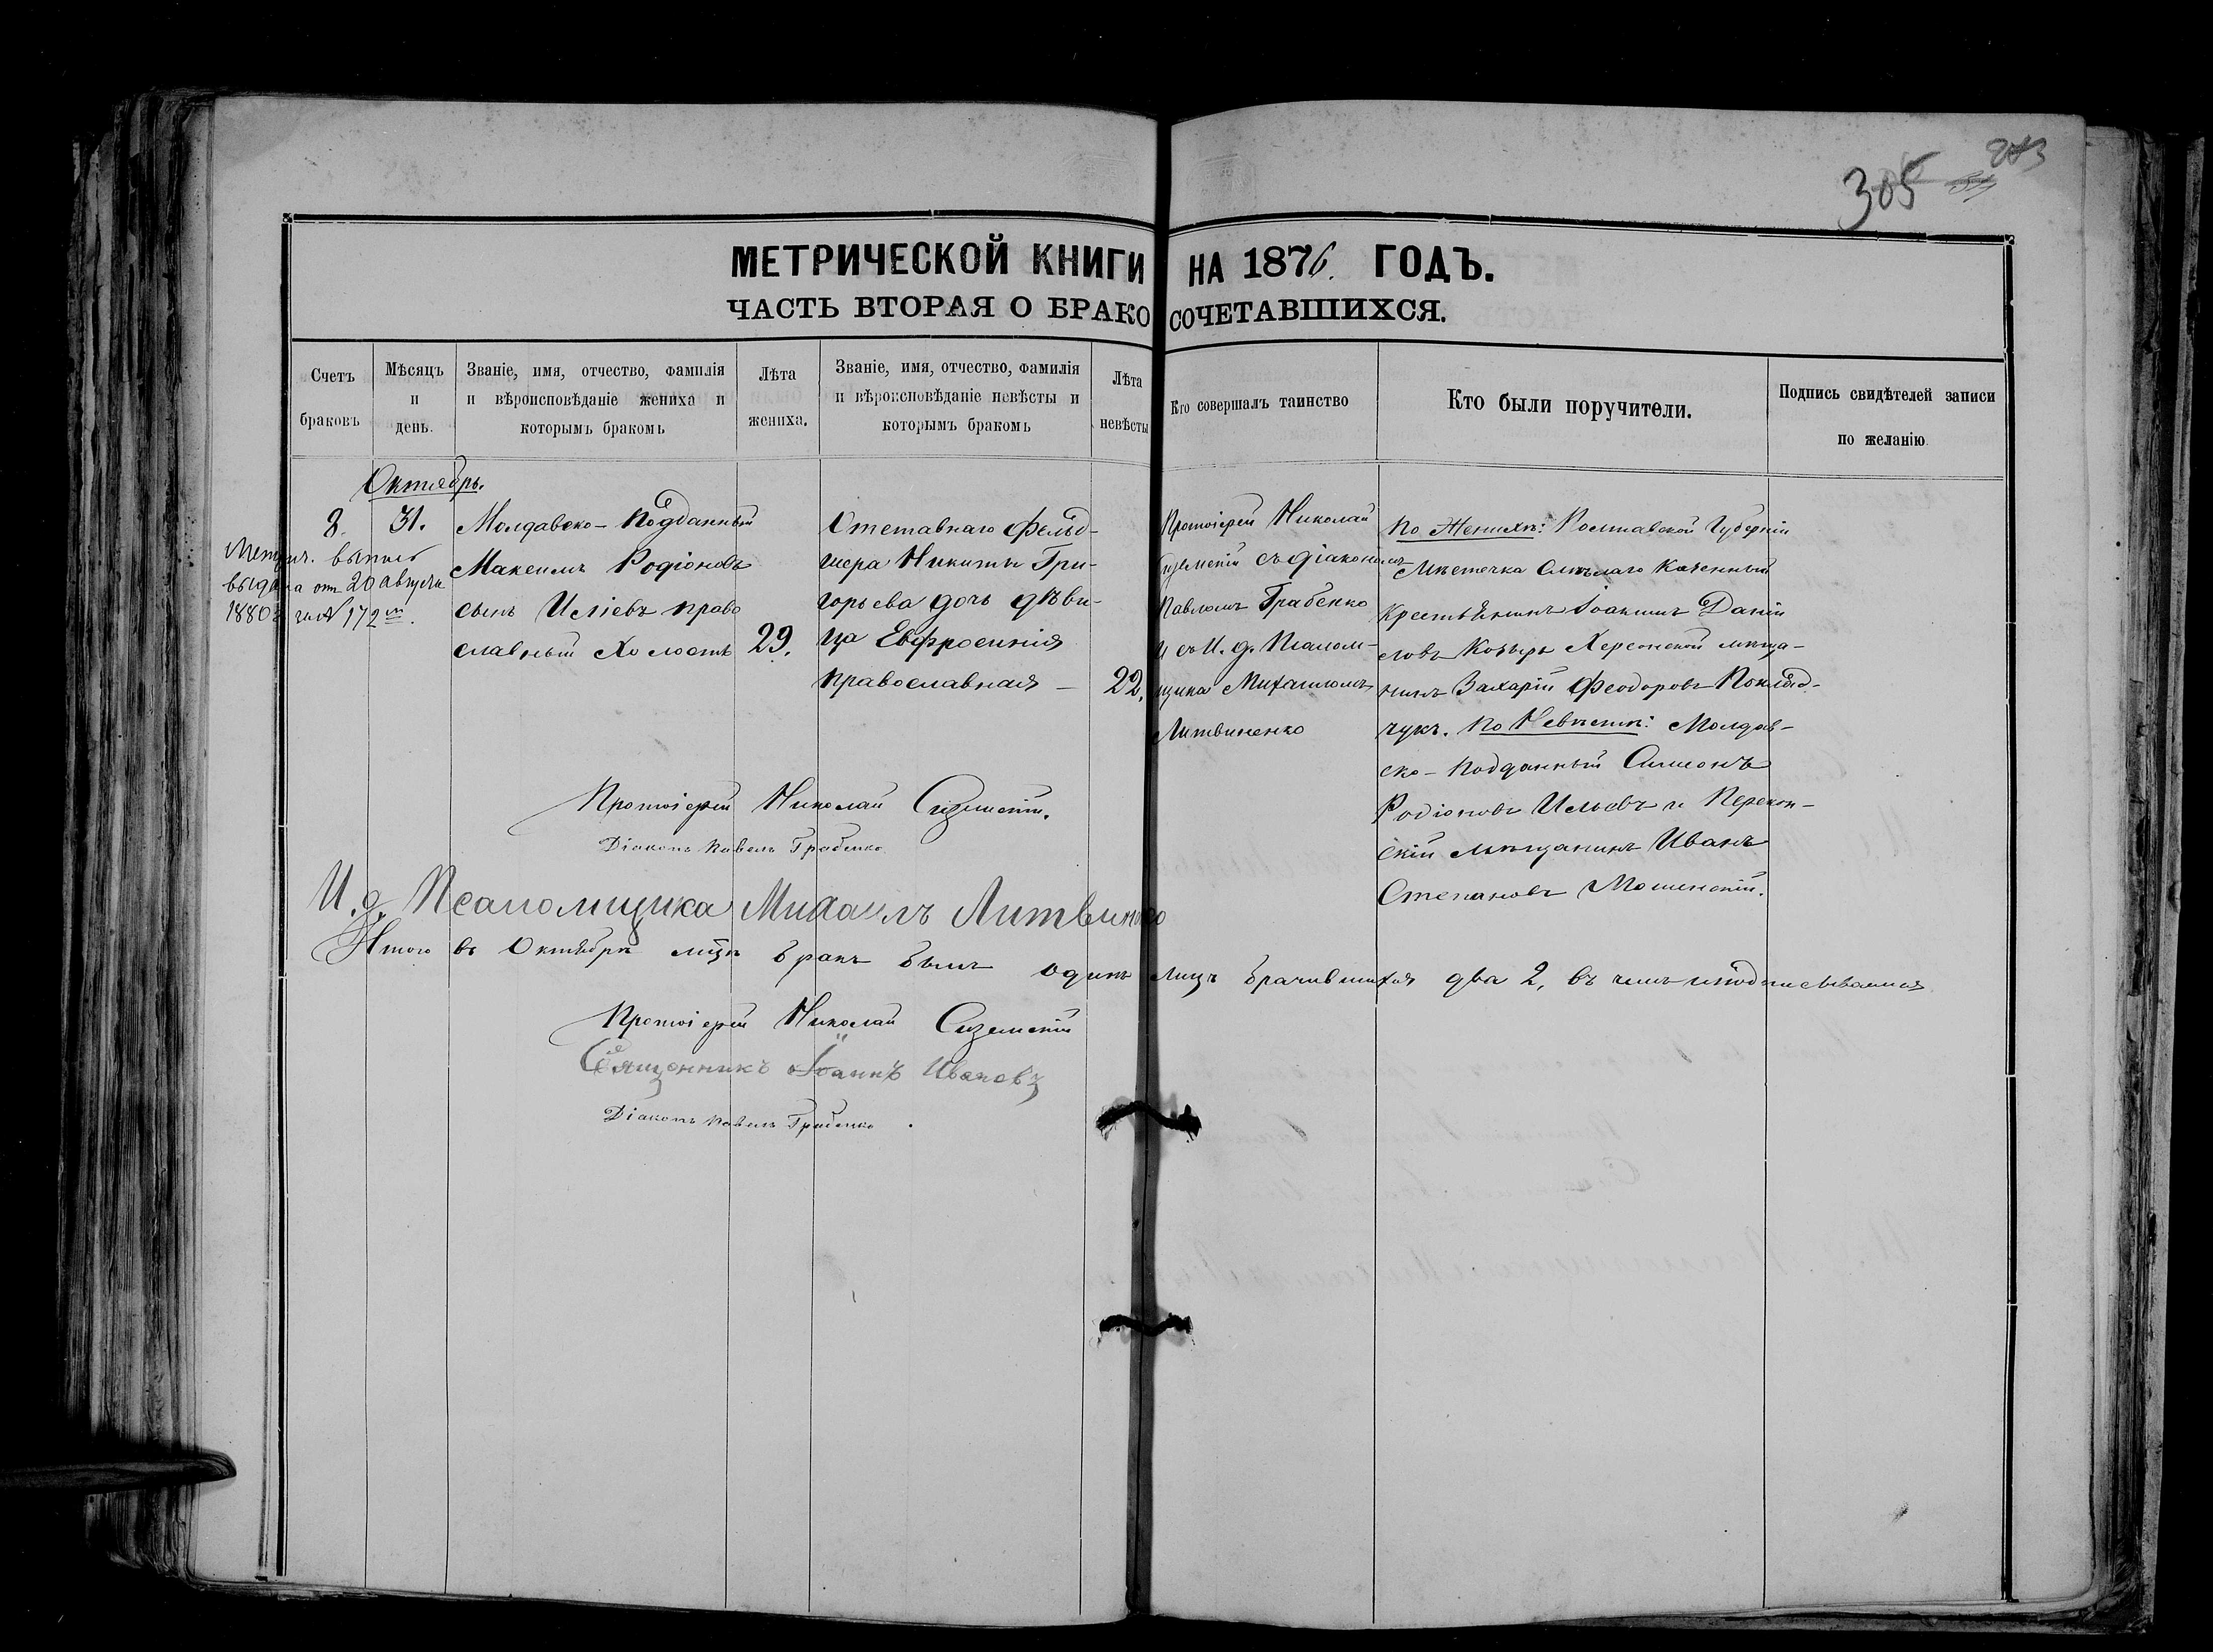 305
МЕТРИЧЕСКОЙ КНИГИ НА 1876. ГОДЪ.
ЧАСТЬ ВТОРАЯ О БРАКОСОЧЕТАВШИХСЯ.
Счетъ браковъ
Мѣсяцъ и день.
Званіе, имя, отчество, фамилія и вѣроисповѣданіе жениха и которымъ бракомъ
Лѣта жениха.
Званіе, имя, отчество, фамилія и вѣроисповѣданіе невѣсты и которымъ бракомъ
Лѣта невѣсты
Кто совершалъ таинство
Кто были поручители.
Подпись свидѣтелей записи по желанію.
Октябрь.
8.
31.
Метрич. выпись
выдана от 20 августа
1880 г. за № 172 м.
Молдавско-Подданный
Максимъ Родіоновъ
сынъ Иліевъ право
славный Холостъ
29.
Отставнаго Фельд-
шера Никиты Гри-
горьева дочь дѣви-
ца Евфросинія
Православная —
22.
Протоіерей Николай
Сиземскій съ діакономъ
Павломъ Грабенко
и съ И. д. Псалом-
щика Михаиломъ
Литвиненко
По Женихѣ: Полтавской Губерніи
Мѣстечка Смѣлаго Казенный
Крестьянинъ Іоакимъ Даніи
ловъ Козырь Херсонской мѣща-
нинъ Захарій Феодоровъ Поклад-
чукъ. По Невѣстѣ: Молдав-
ско-Подданный Симеонъ
Родіоновъ Ильевъ и Перекоп-
скій мѣщанинъ Иванъ
Степановъ Мошинскій.
Протоіерей Николай Сиземскій.
Діаконъ Павелъ Грабенко
И. д. Псаломщика Михаилъ Литвиненко
Итого въ Октябрѣ мцѣ бракъ былъ одинъ лицъ брачившихся два 2, въ чемъ и подписываемся
Протоіерей Николай Сиземскій
Священникъ Іоаннъ Ивановъ
Діаконъ Павелъ Грабенко.